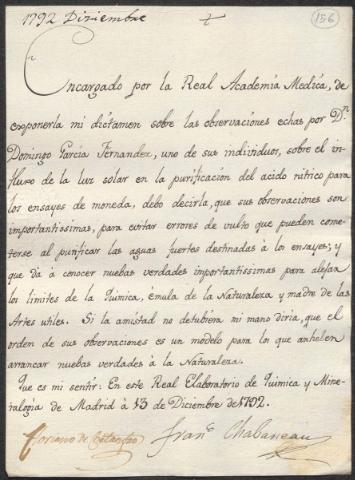 1792 Diziembre
156
Encargado por la Real Academia Medica, de
exponerla mi dictamen sobre las observaciones echas por Dn
Domingo Garcia Fernandez, uno de sus individuos, sobre el in-
fluxo de la luz solar en la purificacion del acido nitrico para
los ensayes de moneda, debo decirla, que sus observaciones son
importantissimas, para evitar errores de vulto que pueden come-
terse al purificar las aguas fuertes destinadas à los ensayes; y
que dà à conocer nuebas verdades importantissimas para alejar
los limites de la Quimica, émula de la Naturaleza y madre de las
Artes utiles. Si la amistad no detubiera mi mano diria, que el
orden de sus observaciones es un modelo para los que anhelen
arrancar nuebas verdades à la Naturaleza.
Que es mi sentir. En este Real Elaboratorio de Quimica y Mine-
ralogia de Madrid à 13 de Diciembre de 1792.
Franco Chabaneau